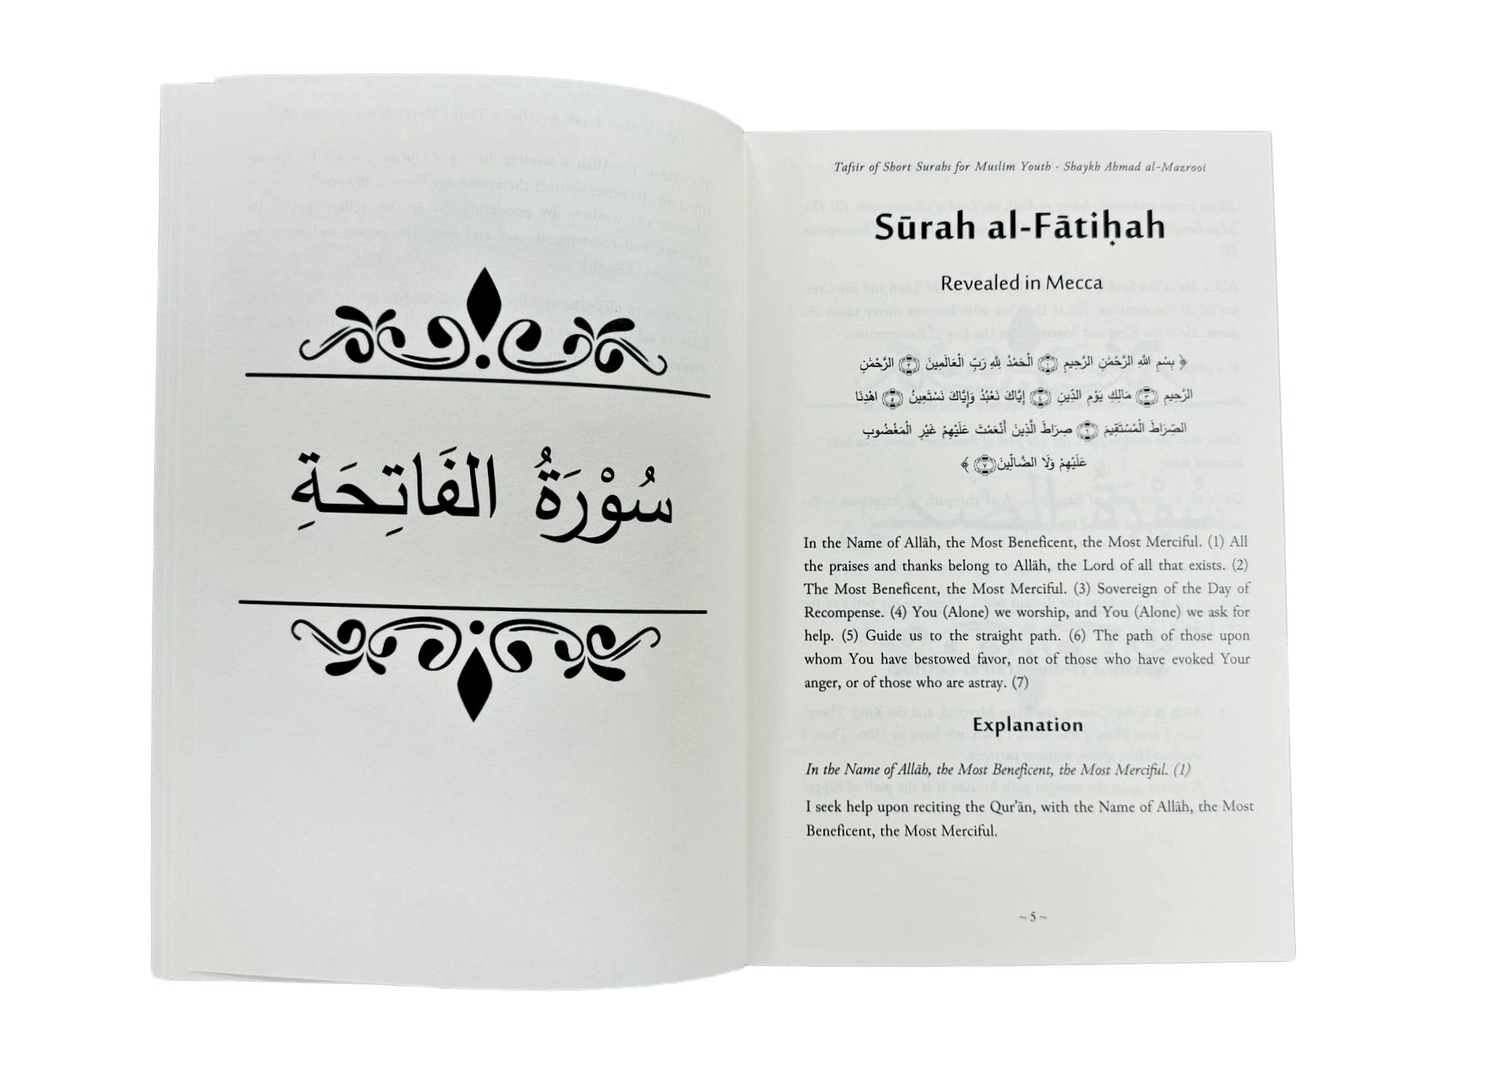 سُوْرَةُ الفَاتِحَةِ
Tafsir of Short Surahs for Muslim Youth · Shaykh Ahmad al-Mazrooi
Sūrah al-Fātiḥah
Revealed in Mecca
﴿ بِسْمِ اللَّهِ الرَّحْمَٰنِ الرَّحِيمِ ﴿١﴾ الْحَمْدُ لِلَّهِ رَبِّ الْعَالَمِينَ ﴿٢﴾ الرَّحْمَٰنِ
الرَّحِيمِ ﴿٣﴾ مَالِكِ يَوْمِ الدِّينِ ﴿٤﴾ إِيَّاكَ نَعْبُدُ وَإِيَّاكَ نَسْتَعِينُ ﴿٥﴾ اهْدِنَا
الصِّرَاطَ الْمُسْتَقِيمَ ﴿٦﴾ صِرَاطَ الَّذِينَ أَنْعَمْتَ عَلَيْهِمْ غَيْرِ الْمَغْضُوبِ
عَلَيْهِمْ وَلَا الضَّالِّينَ ﴿٧﴾ ﴾
In the Name of Allāh, the Most Beneficent, the Most Merciful. (1) All
the praises and thanks belong to Allāh, the Lord of all that exists. (2)
The Most Beneficent, the Most Merciful. (3) Sovereign of the Day of
Recompense. (4) You (Alone) we worship, and You (Alone) we ask for
help. (5) Guide us to the straight path. (6) The path of those upon
whom You have bestowed favor, not of those who have evoked Your
anger, or of those who are astray. (7)
Explanation
In the Name of Allāh, the Most Beneficent, the Most Merciful. (1)
I seek help upon reciting the Qur’ān, with the Name of Allāh, the Most
Beneficent, the Most Merciful.
~ 5 ~